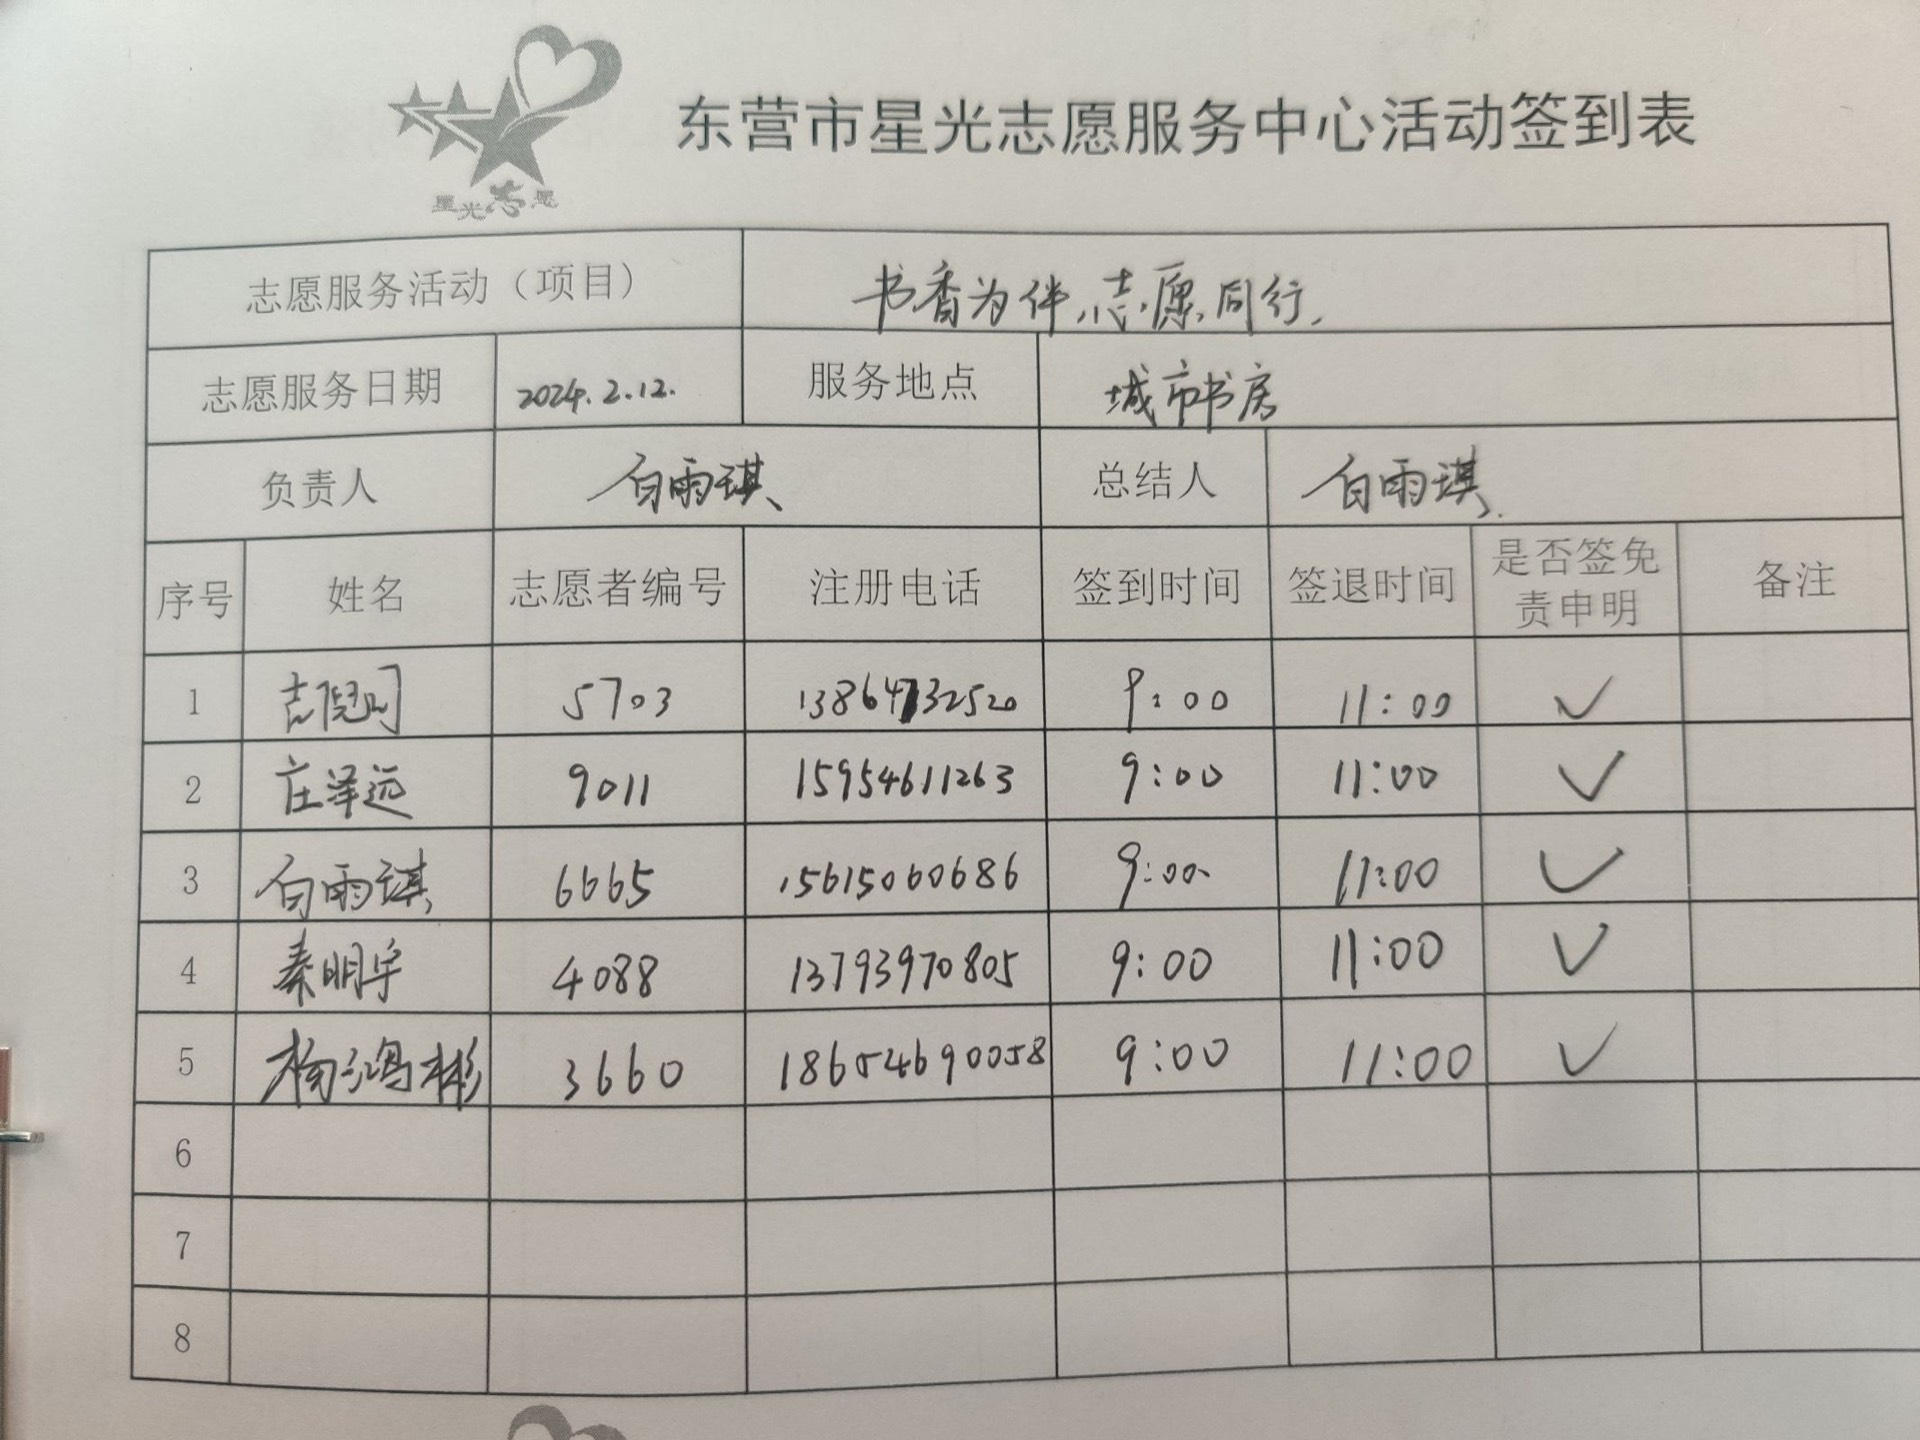 星光志愿
东营市星光志愿服务中心活动签到表
志愿服务活动（项目） 书香为伴,志愿同行.
志愿服务日期 2024.2.12. 服务地点 城市书房
负责人 白雨琪 总结人 白雨琪
序号 姓名 志愿者编号 注册电话 签到时间 签退时间 是否签免责申明 备注
1 5703 9:00 11:00 ✓
2 庄泽远 9011 15954611263 9:00 11:00 ✓
3 白雨琪 6665 15615060686 9:00 11:00 ✓
4 秦明宇 4088 13793970805 9:00 11:00 ✓
5 杨鸿彬 3660 18654690058 9:00 11:00 ✓
6
7
8